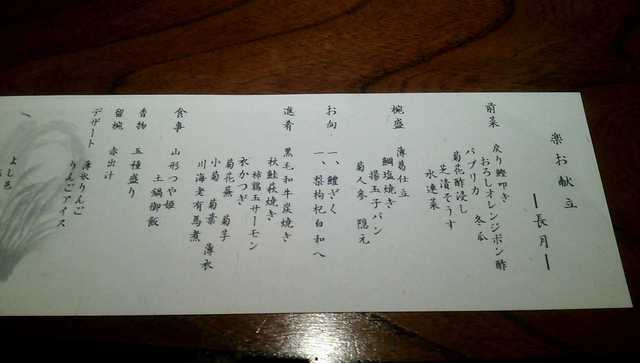 楽お献立
ー長月ー
前菜 戻り鰹叩き
おろしオレンジポン酢
パプリカ 冬瓜
菊花酢浸し
芝漬そうす
水連菜
椀盛 薄葛仕立
鯛塩焼き
揚玉子パン
菊人参 隠元
お向 一、鱧ざく
一、梨枸杞白和へ
進肴 黒毛和牛炭焼き
秋鮭萩焼き
柿鶏玉サーモン
衣かつぎ
菊花蕪 菊芋
小菊 菊葉 薄衣
川海老有馬煮
食事 山形つや姫
土鍋御飯
香物 五種盛り
留椀 赤出汁
デザート 薄氷りんご
りんごアイス